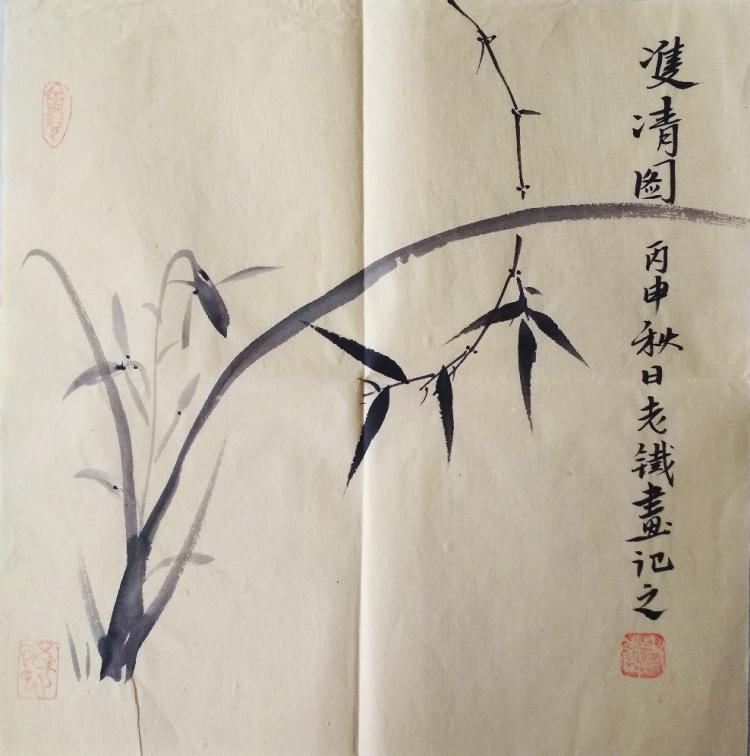 隻清图 丙申秋日老鐵畫记之